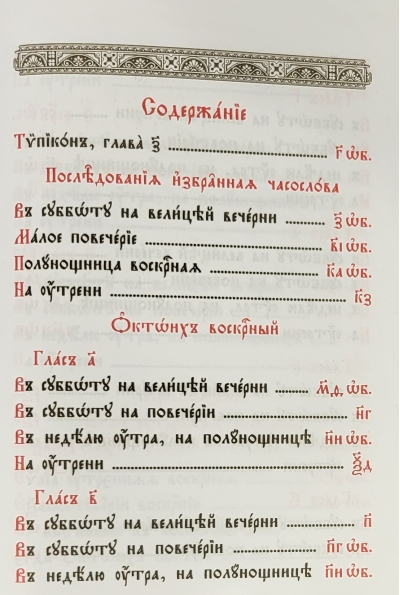 Содержа́нїе
Тѷпїко́нъ, глава̀ ѯ҃ ..... г҃ ѡб.
Послѣ́дованїѧ и҆збра̑ннаѧ часосло́ва
Въ сꙋббѡ́тꙋ на вели́цѣй вече́рни ..... ѯ҃ ѡб.
Ма́лое повече́рїе ..... к҃і ѡб.
Полꙋ́нощница воскр҇наѧ ..... к҃а ѡб.
На ᲂу҆́трени ..... к҃з
Ѻ҆кто́ихъ воскр҇ный
Гла́съ а҃
Въ сꙋббѡ́тꙋ на вели́цѣй вече́рни ..... м҃д ѡб.
Въ сꙋббѡ́тꙋ на повече́рїи ..... н҃г
Въ недѣ́лю ᲂу҆́тра, на полꙋ́нощницѣ ..... н҃и ѡб.
На ᲂу҆́трени ..... ѯ҃д
Гла́съ в҃
Въ сꙋббѡ́тꙋ на вели́цѣй вече́рни ..... п҃
Въ сꙋббѡ́тꙋ на повече́рїи ..... п҃г ѡб.
Въ недѣ́лю ᲂу҆́тра, на полꙋ́нощницѣ ..... п҃и ѡб.